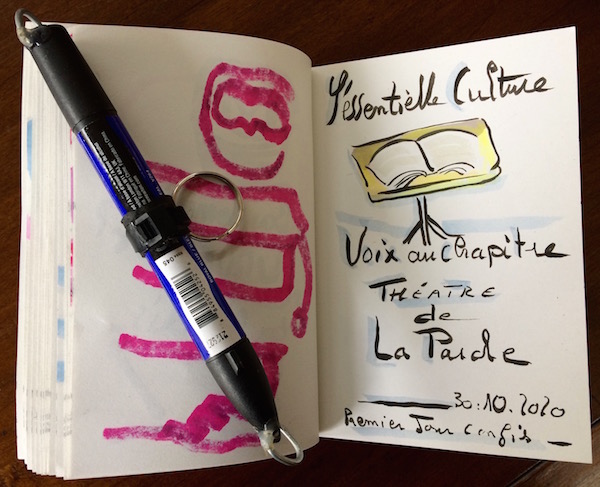 L'essentielle Culture
Voix au chapitre
THÉATRE
de
La Parole
30.10.2020
Premier Jour